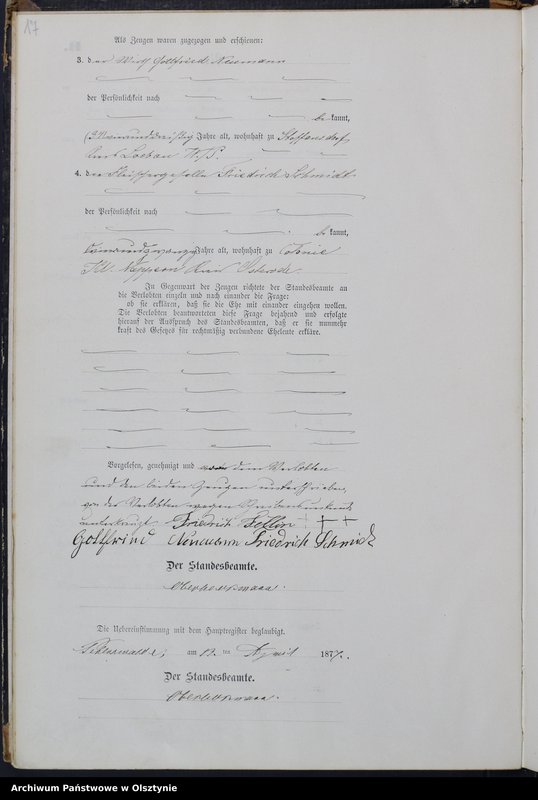 17
Als Zeugen waren zugezogen und erschienen:
3. der Wirth Gottfried Neumann
der Persönlichkeit nach
be kannt,
Jahre alt, wohnhaft zu
Kreis Loebau W/P.
4. der Fleischergeselle Friedrich Schmidt
der Persönlichkeit nach
be kannt,
Jahre alt, wohnhaft zu Colonie
Kl. Nappern Kreis Osterode
In Gegenwart der Zeugen richtete der Standesbeamte an
die Verlobten einzeln und nach einander die Frage:
ob sie erklären, daß sie die Ehe mit einander eingehen wollen.
Die Verlobten beantworteten diese Frage bejahend und erfolgte
hierauf der Ausspruch des Standesbeamten, daß er sie nunmehr
kraft des Gesetzes für rechtmäßig verbundene Eheleute erkläre.
Vorgelesen, genehmigt und von dem Verlobten
und den beiden Zeugen unterschrieben,
von der Verlobten wegen Schreibensunkunde
unterkreuzt Friedrich +++
Gottfried Neumann Friedrich Schmidt
Der Standesbeamte.
Die Uebereinstimmung mit dem Hauptregister beglaubigt.
am 13 ten April 187
Der Standesbeamte.
Archiwum Państwowe w Olsztynie